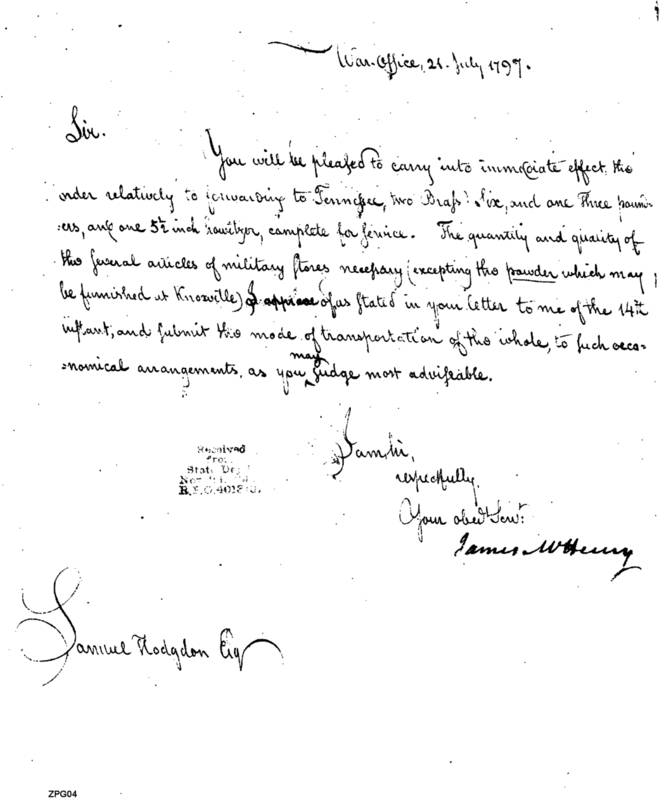 War-Office, 21. July 1797.
Sir.
You will be pleased to carry into immediate effect, the
order relatively to forwarding to Tennessee, two Brass Six, and one Three pound-
-ers, and one 5½ inch howitzer, complete for service. The quantity and quality of
the several articles of military stores necessary (excepting the powder which may
be furnished at Knoxville) I approve of as stated in your letter to me of the 14th
instant, and submit the mode of transportation of the whole, to such œco-
-nomical arrangements, as you may judge most adviseable.
I am Sir,
respectfully,
Your obedt. Servt.
James McHenry
Received
from
State De
B.F.O.
Samuel Hodgdon Esq
ZPG04